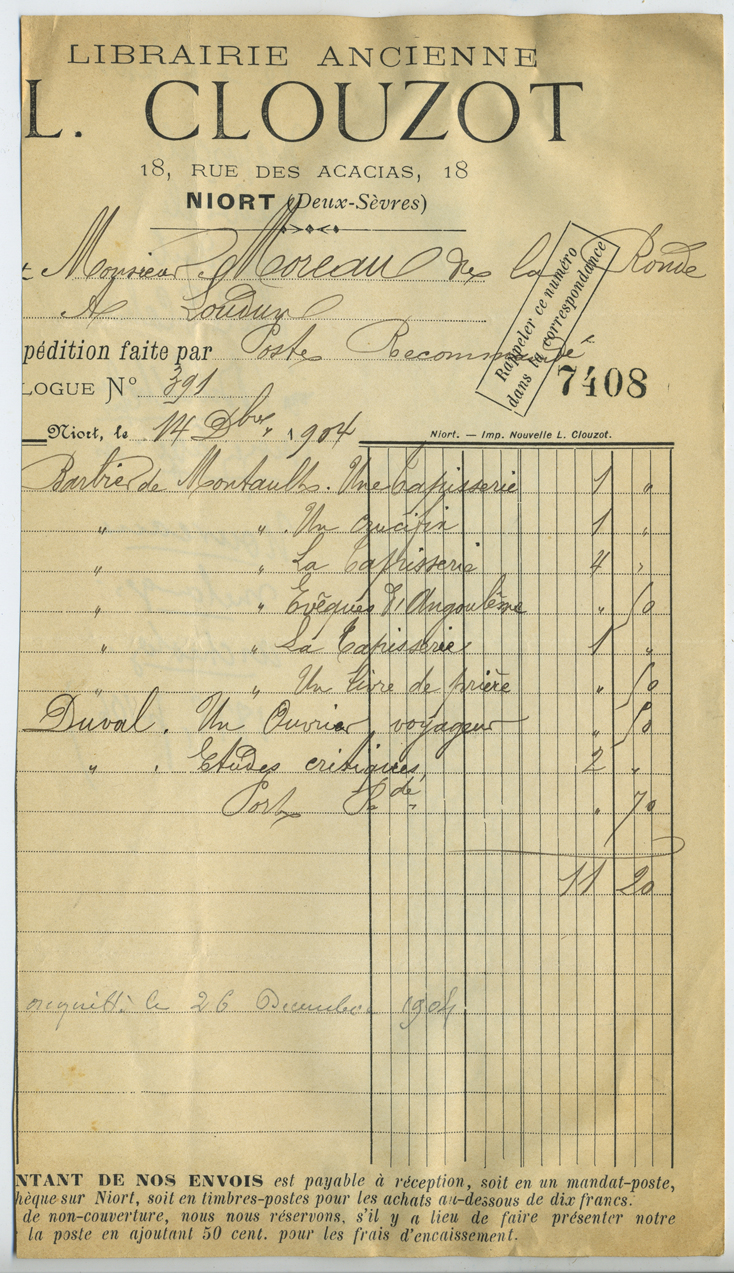 LIBRAIRIE ANCIENNE
L. CLOUZOT
18, RUE DES ACACIAS, 18
NIORT (Deux-Sèvres)
Monsieur Moreau de la Ronde
A Loudun
Rappeler ce numéro
dans la correspondance
7408
pédition faite par Poste Recommandé
LOGUE N° 391
Niort, le 14 Dbre 1904
Niort. — Imp. Nouvelle L. Clouzot.
Barbier de Montault. Une Tapisserie 1 "
" " . Un crucifix 1 "
" " La Tapisserie 4 "
" " Evêques d'Angoulême " 50
" " La Tapisserie 1 "
" " Un livre de prière " 50
Duval. Un Ouvrier voyageur " 50
" . Etudes critiques 2 "
Port Rdé " 70
11 20
acquitté le 26 Decembre 1904.
NTANT DE NOS ENVOIS est payable à réception, soit en un mandat-poste,
hèque sur Niort, soit en timbres-postes pour les achats au-dessous de dix francs.
de non-couverture, nous nous réservons, s'il y a lieu de faire présenter notre
la poste en ajoutant 50 cent. pour les frais d'encaissement.